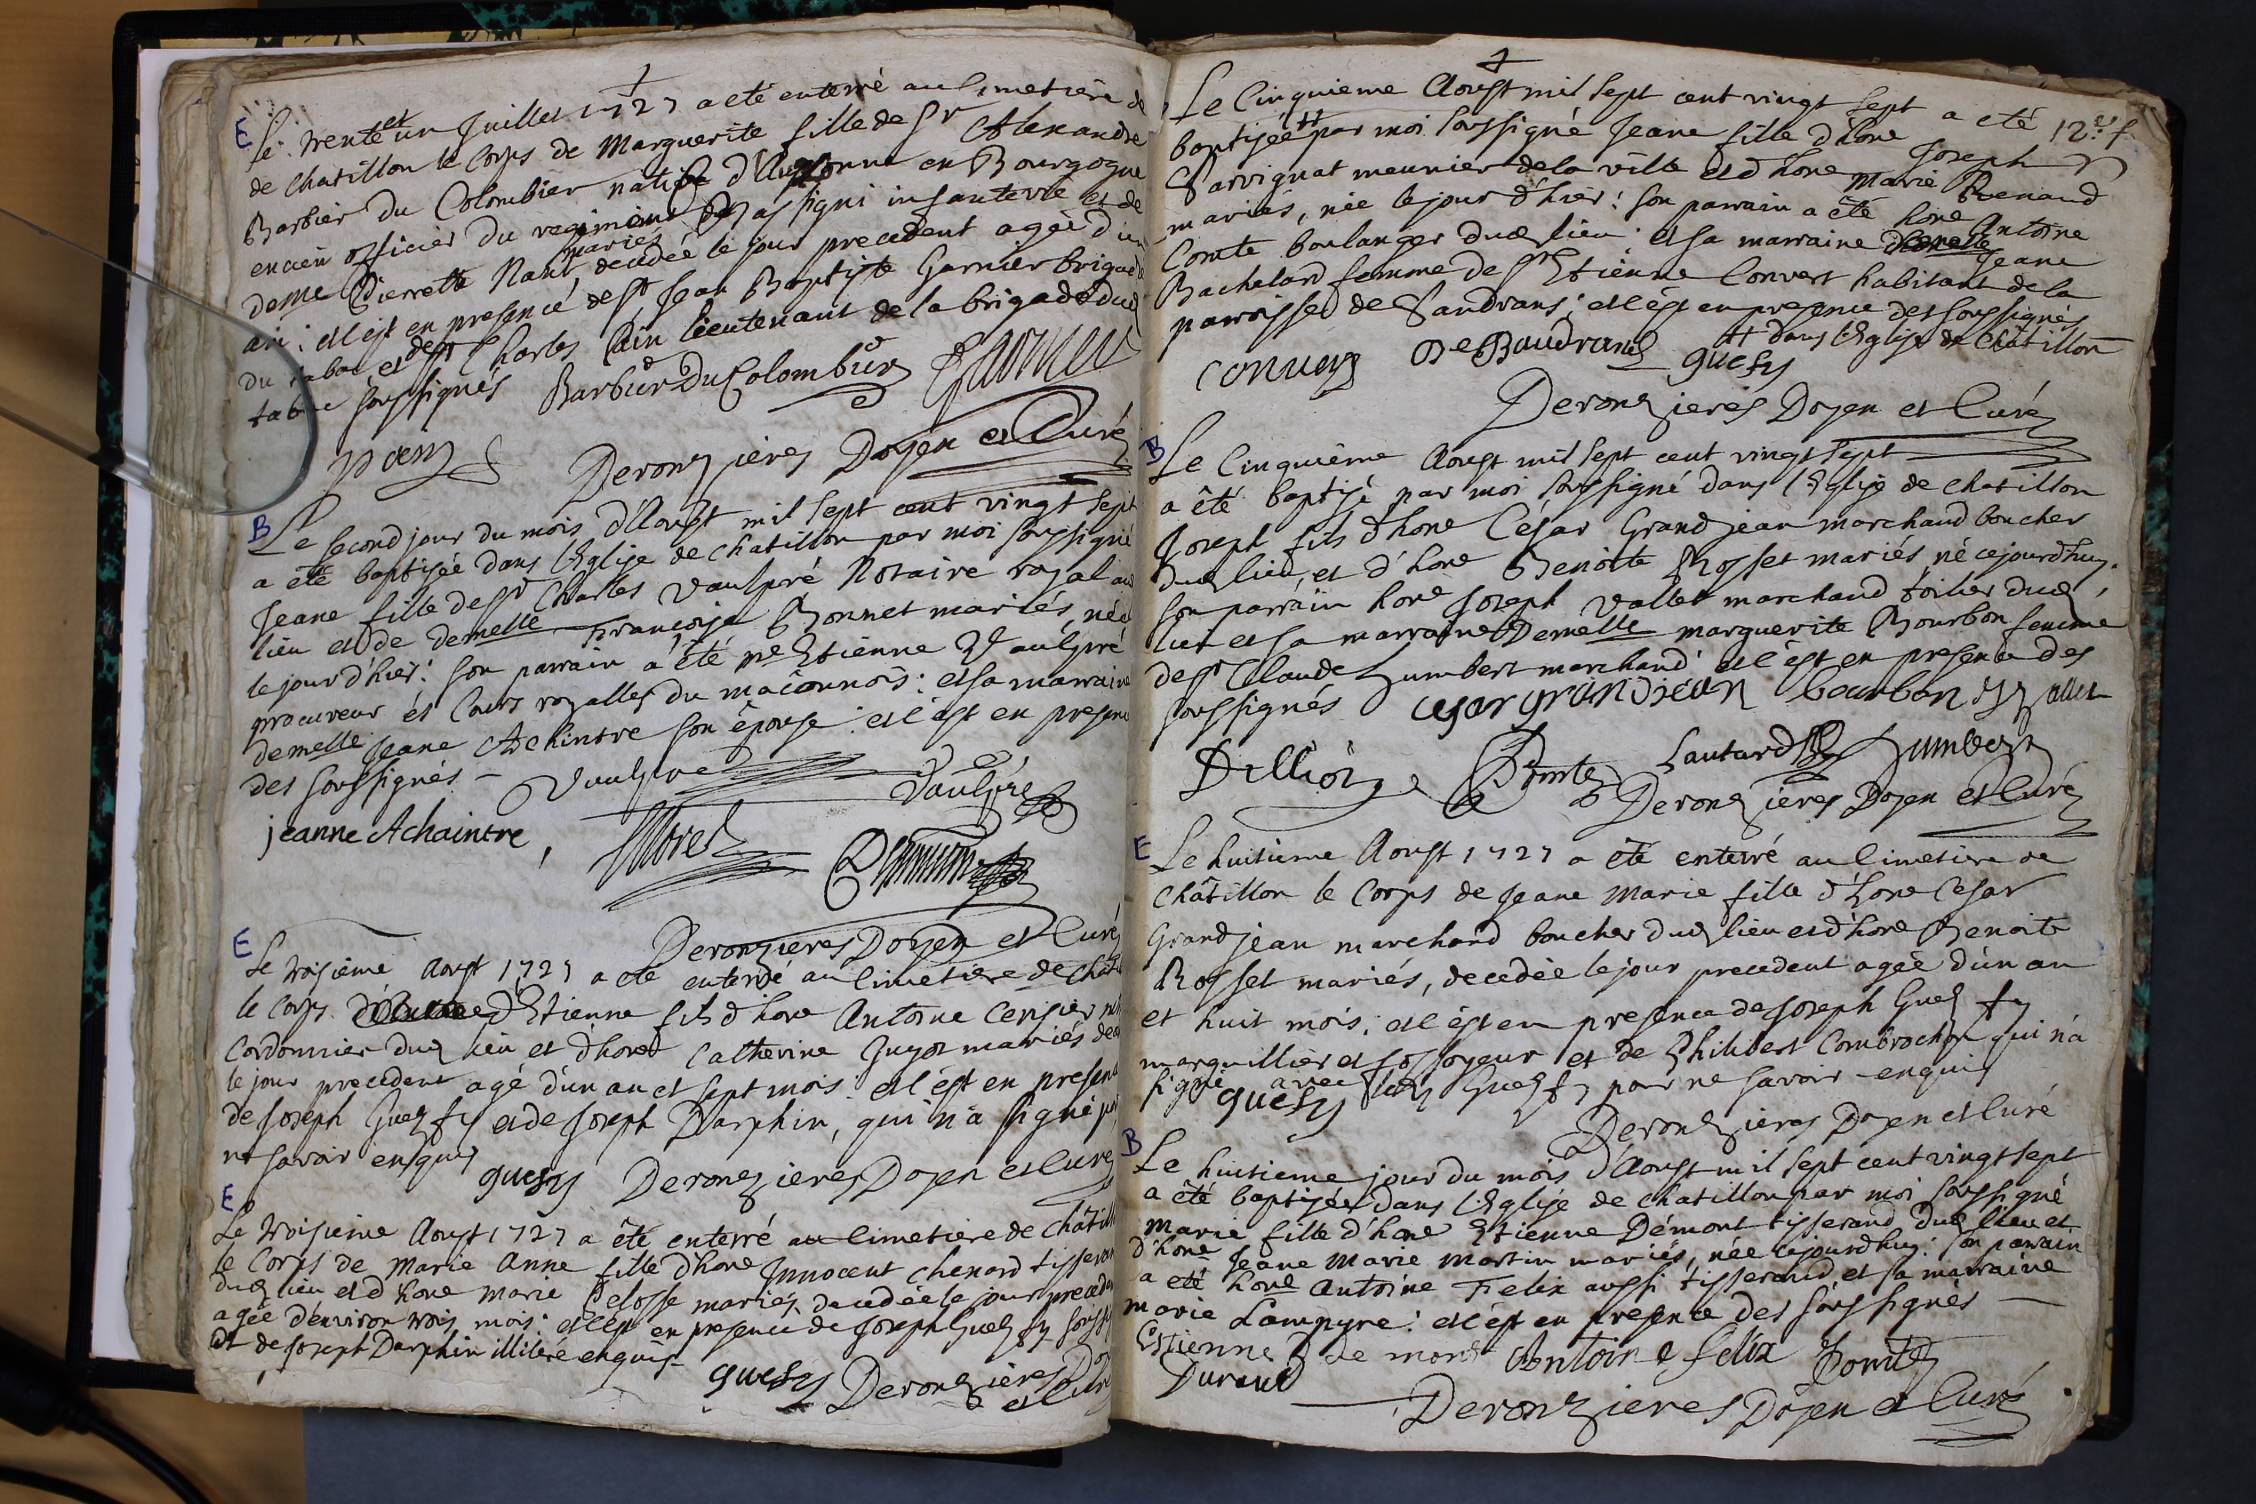 E
Le trente et un Juillet 1727 a eté enterré au Cimetière de
de Chatillon le Corps de Marguerite fille de Sr Alexandre
Barbier du Colombier natif d'Auxonne en Bourgogne
encien officier du regiment de infanterie et de
deme Pierrette Nant mariés, decedée le jour precedent agée d'un
an : et c'est en presence de Sr Jean Baptiste Garnier brigad
du tabac et de Sr Charles lieutenant de la brigade dud
tabac soussignés Barbier Du Colombier Garnier
Deronzieres Doyen et Curé
B
Le second jour du mois d'Aoust mil sept cent vingt sept
a été baptisée dans l'Eglise de Chatillon par moi soussigné
Jeane fille de Sr Charles Vaulpré Notaire royal aud
lieu et de demelle Françoise Bonnet mariés, née
le jour d'hier : son parrain a été Mr Etienne Vaulpré
procureur és Cours royalles du maconnois : et sa marraine
demelle Jeane Achintre son épouse : et c'est en presence
des soussignés - Vaulpré Vaulpré
jeanne Achaintre, Morel
Deronzieres Doyen et Curé
E
Le troisième Aoust 1727 a eté enterré au Cimetiere de Chat
le Corps d'Etienne fils d'hone Antoine Cerisier
Cordonnier dud lieu et d'hone Catherine Guyot mariés dec
le jour precedent agé d'un an et sept mois : et c'est en presence
de Joseph Guesfy et de Joseph Darphin, qui n'a signé p
ne savoir enquis guesfy Deronzieres Doyen et Curé
E
Le troisieme Aoust 1727 a été enterré au Cimetiere de Châtill
le Corps de Marie Anne fille d'hone Innocent Chenard tisseran
dud lieu et d'hone Marie Pelosse mariés, decedée le jour preceden
agée d'environ trois mois : et c'est en presence de Joseph Guesfy soussi
et de Joseph Darphin illiteré enquis
guesfy Deronzieres Doy
et Curé
12e f
Le Cinquieme Aoust mil sept cent vingt sept a eté
baptisée ++ par moi soussigné Jeane fille d'hone Joseph
Sarvignat meunier de la ville et d'hone Marie Renaud
mariés, née le jour d'hier : son parrain a été hone Antoine
Comte boulanger dud lieu : et sa marraine Jeane
Bachelard femme de Sr Etienne Convert habitant de la
paroisse de Sandrans ; et c'est en presence des soussignés
++ dans l'Eglise de Châtillon
Convers De Baudrand guesfy
Deronzieres Doyen et Curé
B
Le Cinquième Aoust mil sept cent vingt sept
a été baptisé par moi soussigné dans l'Eglise de Chatillon
Joseph fils d'hone César Grandjean marchand boucher
dud lieu, et d'hone Benoite Rosset mariés, né cejourd'huy.
son parrain hone Joseph Vallet marchand toilier dud
lieu et sa marraine Demelle marguerite Bourbon femme
de Sr Claude Humbert marchand et c'est en presence des
soussignés cesar grandjean bourbon J Vallet
Comte Lautard Humbert
Deronzieres Doyen et Curé
E
Le huitieme Aoust 1727 a été enterré au Cimetiere de
Châtillon le Corps de Jeane Marie fille d'hone Cesar
Grandjean marchand boucher dud lieu et d'hone Benoite
Rosset mariés, decedée le jour precedent agée d'un an
et huit mois ; et c'est en presence de Joseph Guesfy
marguillier et fossoyeur et de Philibert Combrochon qui n'a
signé avec led Guesfy pour ne savoir enquis
guesfy
Deronzieres Doyen et Curé
B
Le huitieme jour du mois d'Aoust mil sept cent vingt sept
a été baptisée dans l'Eglise de Chatillon par moi soussigné
Marie fille d'hone Etienne Démont tisserand dud lieu et
d'hone Jeane Marie Martin mariés, née cejourd'huy : son parrain
a eté hone Antoine Felix aussi tisserand, et sa marraine
Marie Lampyre : et c'est en presence des soussignés
Estienne de mont Antoine felix Comte
Durand
Deronzieres Doyen et Curé